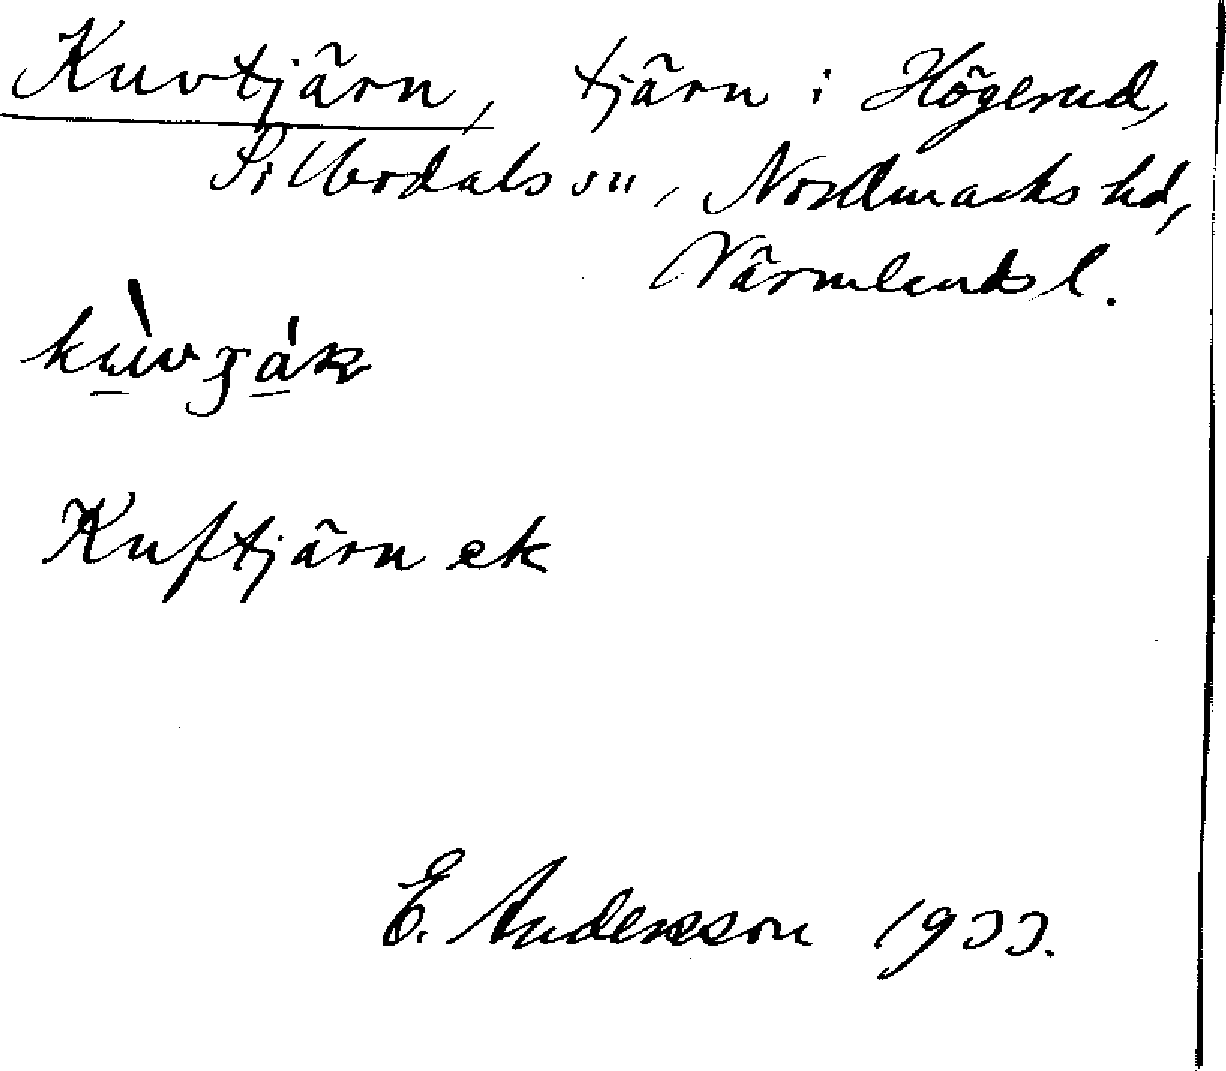 Kuvtjärn, tjärn i Högerud,
Sillerdals sn, Nordmarks hd,
Värmlands l.
Kuftjärn ek
E. Andersson 1933.